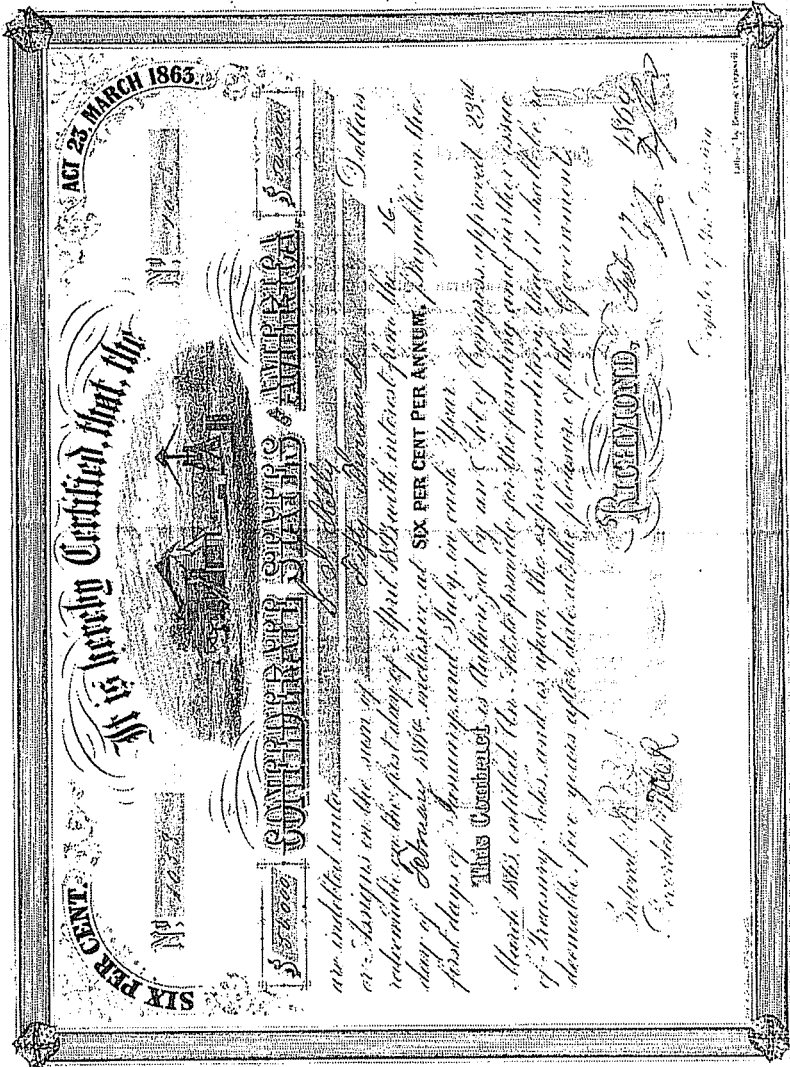 SIX PER CENT.
ACT 23, MARCH 1863.
It is hereby Certified, that, the
Nº
Nº
CONFEDERATE STATES OF AMERICA
$ 50,000
$ 50,000
are indebted unto
or Assigns in the sum of Fifty Thousand Dollars
redeemable on the first day of April 1868, with interest from the 16
day of February 1864, inclusive, at SIX PER CENT PER ANNUM, Payable on the
first days of January and July in each Year.
This Contract is authorized by an Act of Congress, approved 23rd
March 1863, entitled "An Act to provide for the funding and further issue
of Treasury Notes, and is upon the express condition, that it shall be re
deemable, five years after date at the pleasure of the Government.
RICHMOND, Feb 17 1864
Entered
Recorded
Register of the Treasury